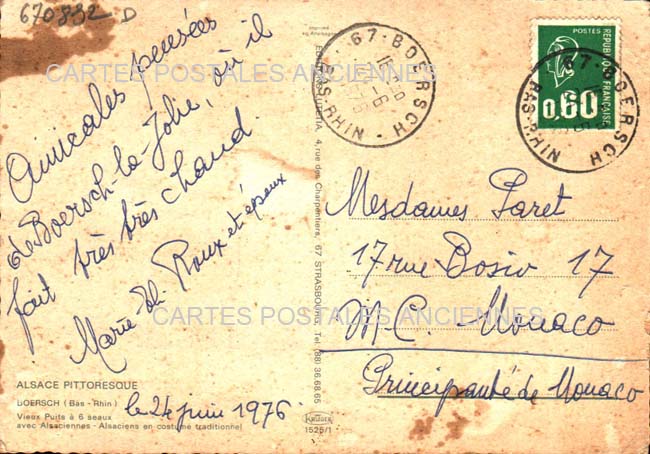 670832 D
CARTES POSTALES ANCIENNES
Amicales pensées
de Boersch-la-Jolie, où il
fait très très chaud.
Marie-Th. Roux et époux
le 24 juin 1976.
ALSACE PITTORESQUE
BOERSCH (Bas - Rhin)
Vieux Puits à 6 seaux
avec Alsaciennes - Alsaciens en costume traditionnel
4, rue des Charpentiers, 67 STRASBOURG, Tél. (88) 36.68.65
KRUGER
1525/1
67-BOERSCH
BAS-RHIN
POSTES
REPUBLIQUE FRANÇAISE
0,60
67-BOERSCH
BAS-RHIN
Mesdames Paret
17 rue Bosio 17
M.C. - Monaco
Principauté de Monaco
CARTES POSTALES ANCIENNES